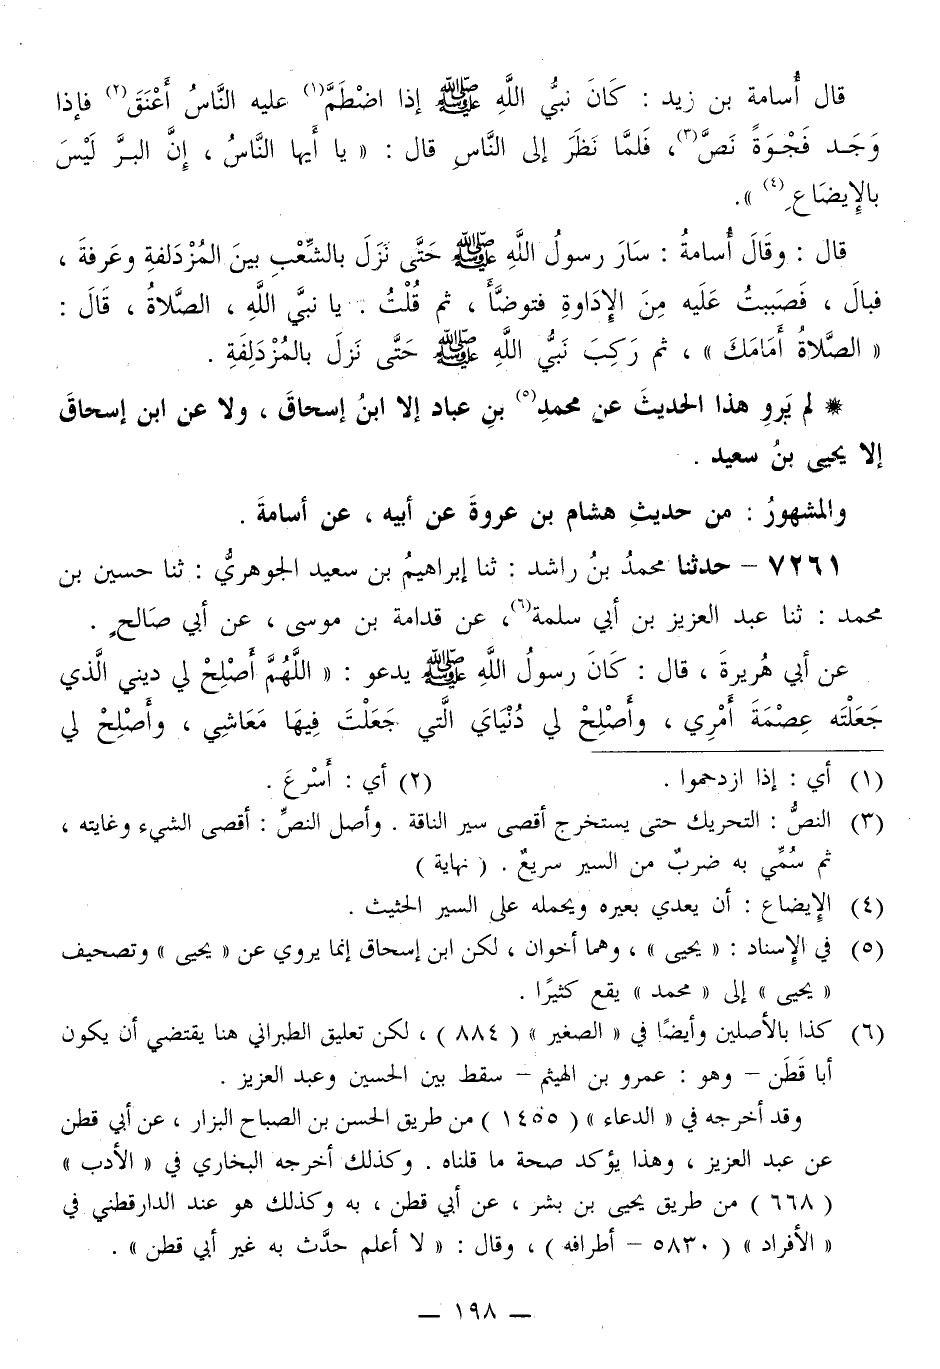 قال أُسامة بن زيد : كَانَ نبيُّ اللَّهِ ﷺ إذا اضْطَمَّ(١) عليه النَّاسُ أَعْنَقَ(٢) فإذا
وَجَـد فَجْـوَةً نَصَّ(٣)، فَلمَّا نَظَرَ إلى النَّاسِ قال : « يا أيها النَّاسُ ، إنَّ البـرَّ لَيْسَ
بالإيضَاعِ(٤) ».
قال : وقَالَ أُسامةُ : سَارَ رسولُ اللَّهِ ﷺ حَتَّى نَزَلَ بالشِّعْبِ بينَ المُزْدَلفةِ وعَرفةَ ،
فبالَ ، فَصَببتُ عَلَيه مِنَ الإدَاوةِ فتوضَّأَ ، ثم قُلْتُ : يا نبيَّ اللَّهِ ، الصَّلاةُ ، قَالَ :
« الصَّلاةُ أَمَامَكَ » ، ثم رَكِبَ نَبيُّ اللَّهِ ﷺ حَتَّى نَزلَ بالمُزْدَلِفَةِ .
* لم يَروِ هذا الحديثَ عن محمدِ(٥) بنِ عباد إلا ابنُ إسحاقَ ، ولا عن ابن إسحاقَ
إلا يحيى بنُ سعيد .
والمشهورُ : من حديثِ هشام بن عروةَ عن أبيه ، عن أسامةَ .
٧٢٦١ – حدثنا محمدُ بنُ راشد : ثنا إبراهيمُ بن سعيد الجوهريُّ : ثنا حسين بن
محمد : ثنا عبد العزيز بن أبي سلمة(٦)، عن قدامة بن موسى ، عن أبي صالحٍ .
عن أبي هُريرةَ ، قال : كَانَ رسولُ اللَّهِ ﷺ يدعو : « اللَّهُمَّ أَصْلِحْ لي ديني الَّذي
جَعَلْته عِصْمَةَ أَمْرِي ، وأَصْلِحْ لي دُنْيَايَ الَّتي جَعَلْتَ فِيهَا مَعَاشِي ، وأَصْلِحْ لي
(١) أي : إذا ازدحموا . (٢) أي : أَسْرعَ .
(٣) النصُّ : التحريك حتى يستخرج أقصى سير الناقة . وأصل النصِّ : أقصى الشيء وغايته ،
ثم سُمِّي به ضربٌ من السير سريعٌ . ( نهاية )
(٤) الإيضاع : أن يعدي بعيره ويحمله على السير الحثيث .
(٥) في الإسناد : « يحيى » ، وهما أخوان ، لكن ابن إسحاق إنما يروي عن « يحيى » وتصحيف
« يحيى » إلى « محمد » يقع كثيرًا .
(٦) كذا بالأصلين وأيضًا في « الصغير » ( ٨٨٤ ) ، لكن تعليق الطبراني هنا يقتضي أن يكون
أبا قَطَن – وهو : عمرو بن الهيثم – سقط بين الحسين وعبد العزيز .
وقد أخرجه في « الدعاء » ( ١٤٥٥ ) من طريق الحسن بن الصباح البزار ، عن أبي قطن
عن عبد العزيز ، وهذا يؤكد صحة ما قلناه . وكذلك أخرجه البخاري في « الأدب »
( ٦٦٨ ) من طريق يحيى بن بشر ، عن أبي قطن ، به وكذلك هو عند الدارقطني في
« الأفراد » ( ٥٨٣٠ – أطرافه ) ، وقال : « لا أعلم حدَّث به غير أبي قطن » .
— ١٩٨ —